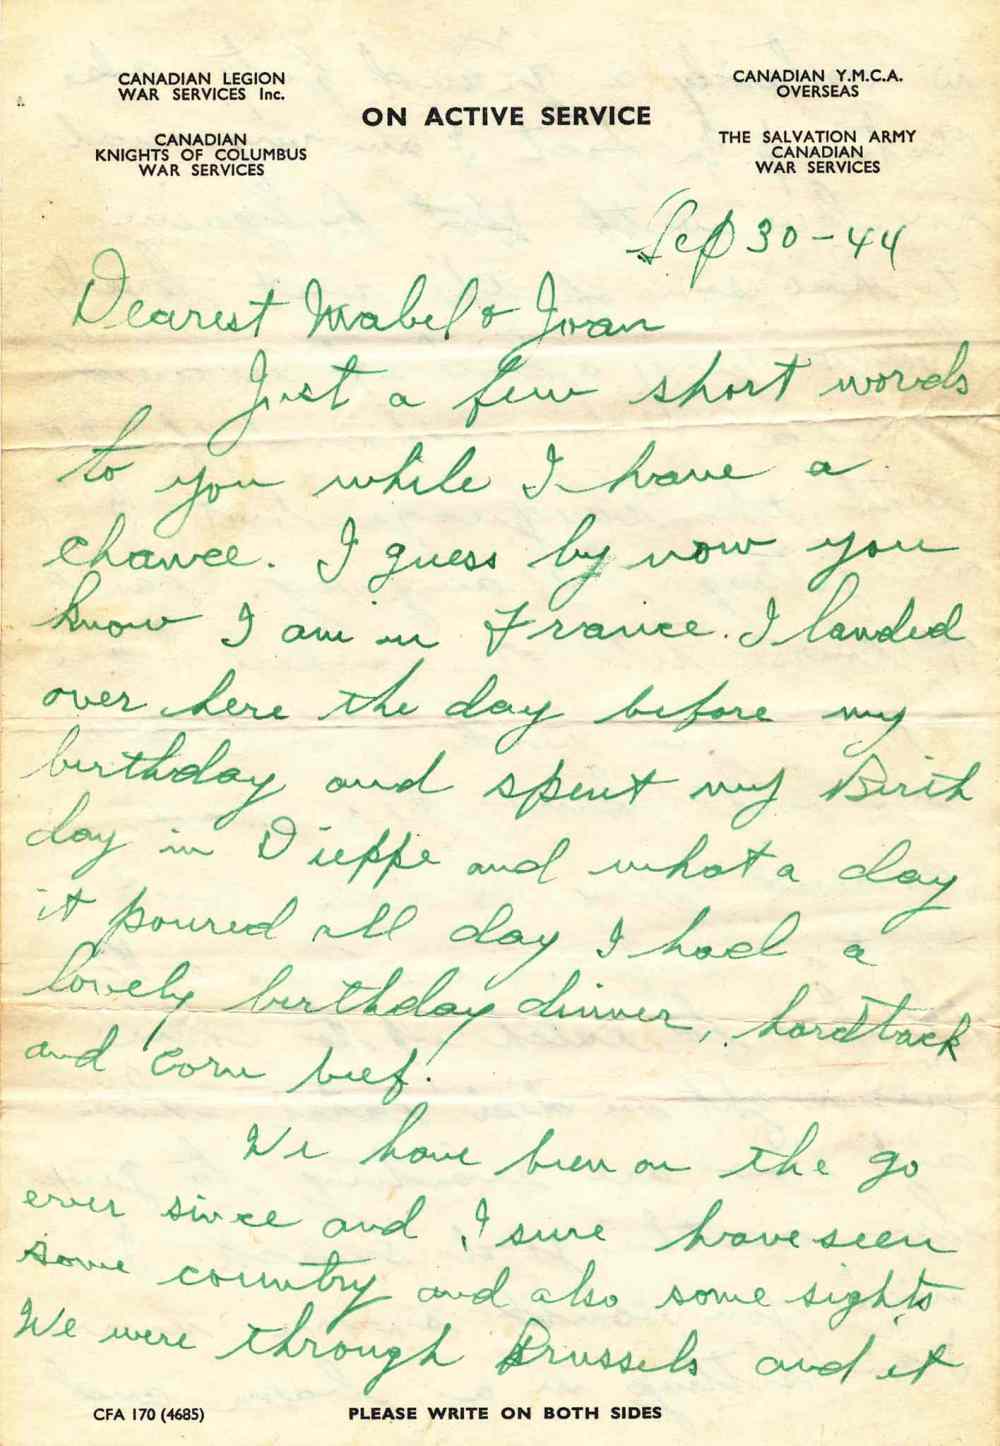 CANADIAN LEGION
WAR SERVICES Inc.
CANADIAN
KNIGHTS OF COLUMBUS
WAR SERVICES
ON ACTIVE SERVICE
CANADIAN Y.M.C.A.
OVERSEAS
THE SALVATION ARMY
CANADIAN
WAR SERVICES
Sep 30-44
Dearest Mabel & Joan
Just a few short words
to you while I have a
chance. I guess by now you
know I am in France. I landed
over here the day before my
birthday and spent my Birth
day in Dieppe and what a day
it poured all day I had a
lovely birthday dinner, hardtack
and corn beef.
We have been on the go
ever since and I sure have seen
some country and also some sights
We were through Brussels and it
CFA 170 (4685)
PLEASE WRITE ON BOTH SIDES